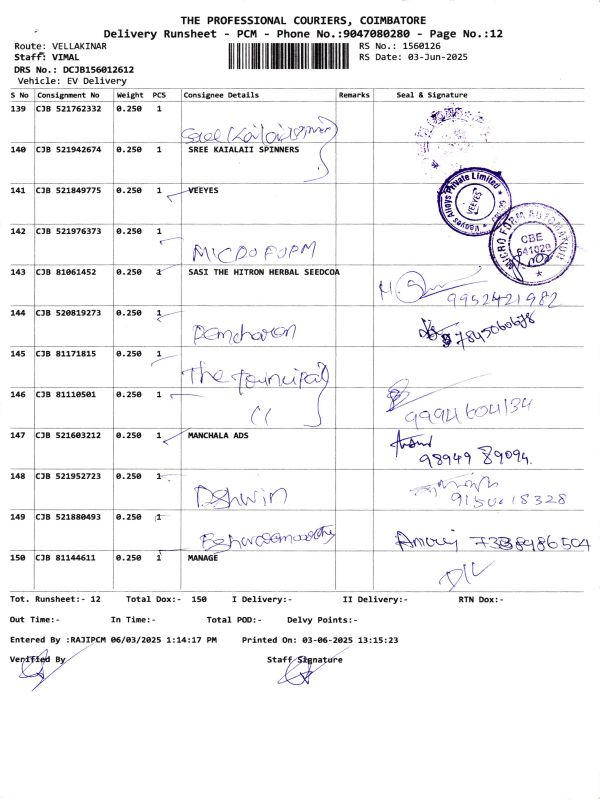 THE PROFESSIONAL COURIERS, COIMBATORE
Delivery Runsheet - PCM - Phone No.:9047080280 - Page No.:12
Route: VELLAKINAR RS No.: 1560126
Staff: VIMAL RS Date: 03-Jun-2025
DRS No.: DCJB156012612
Vehicle: EV Delivery
S No Consignment No Weight PCS Consignee Details Remarks Seal & Signature
139 CJB 521762332 0.250 1
140 CJB 521942674 0.250 1 SREE KAIALAII SPINNERS
141 CJB 521849775 0.250 1 VEEYES
Private Limited
VEEYES
142 CJB 521976373 0.250 1
MICRO FORM
MICRO FORM AUTOMATION
CBE
641029
143 CJB 81061452 0.250 1 SASI THE HITRON HERBAL SEEDCOA
9952421982
144 CJB 520819273 0.250 1
Ramcharan
145 CJB 81171815 0.250 1
The Principal
146 CJB 81110501 0.250 1
9994604134
147 CJB 521603212 0.250 1 MANCHALA ADS
98949 89094
148 CJB 521952723 0.250 1
Dshwin
149 CJB 521880493 0.250 1
150 CJB 81144611 0.250 1 MANAGE
Tot. Runsheet:- 12 Total Dox:- 150 I Delivery:- II Delivery:- RTN Dox:-
Out Time:- In Time:- Total POD:- Delvy Points:-
Entered By :RAJIPCM 06/03/2025 1:14:17 PM Printed On: 03-06-2025 13:15:23
Verified By Staff Signature